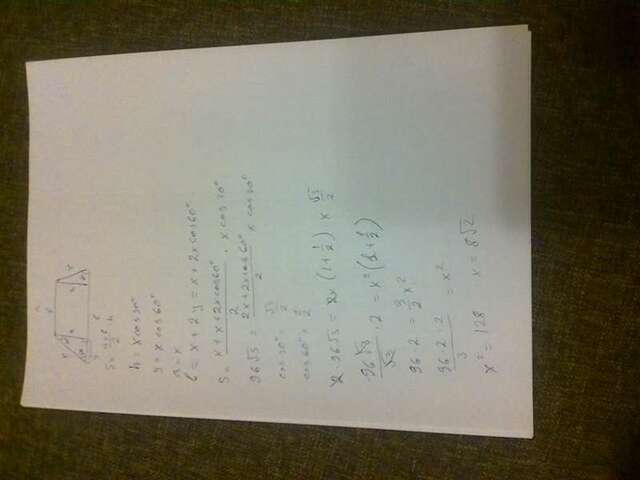 S = (a+b)/2 · h
h = x cos30°
y = x cos60°
a = x
b = x + 2y = x + 2x cos60°
S = (x + x + 2x cos60°)/2 · x cos30°
96√3 = (2x + 2x cos60°)/2 x cos30°
cos30° = √3/2
cos60° = 1/2
2 · 96√3 = 2x (1 + 1/2) x √3/2
96√3/√3 · 2 = x² (1 + 1/2)
96 · 2 = 3/2 x²
(96 · 2 · 2)/3 = x²
x² = 128 x = 8√2